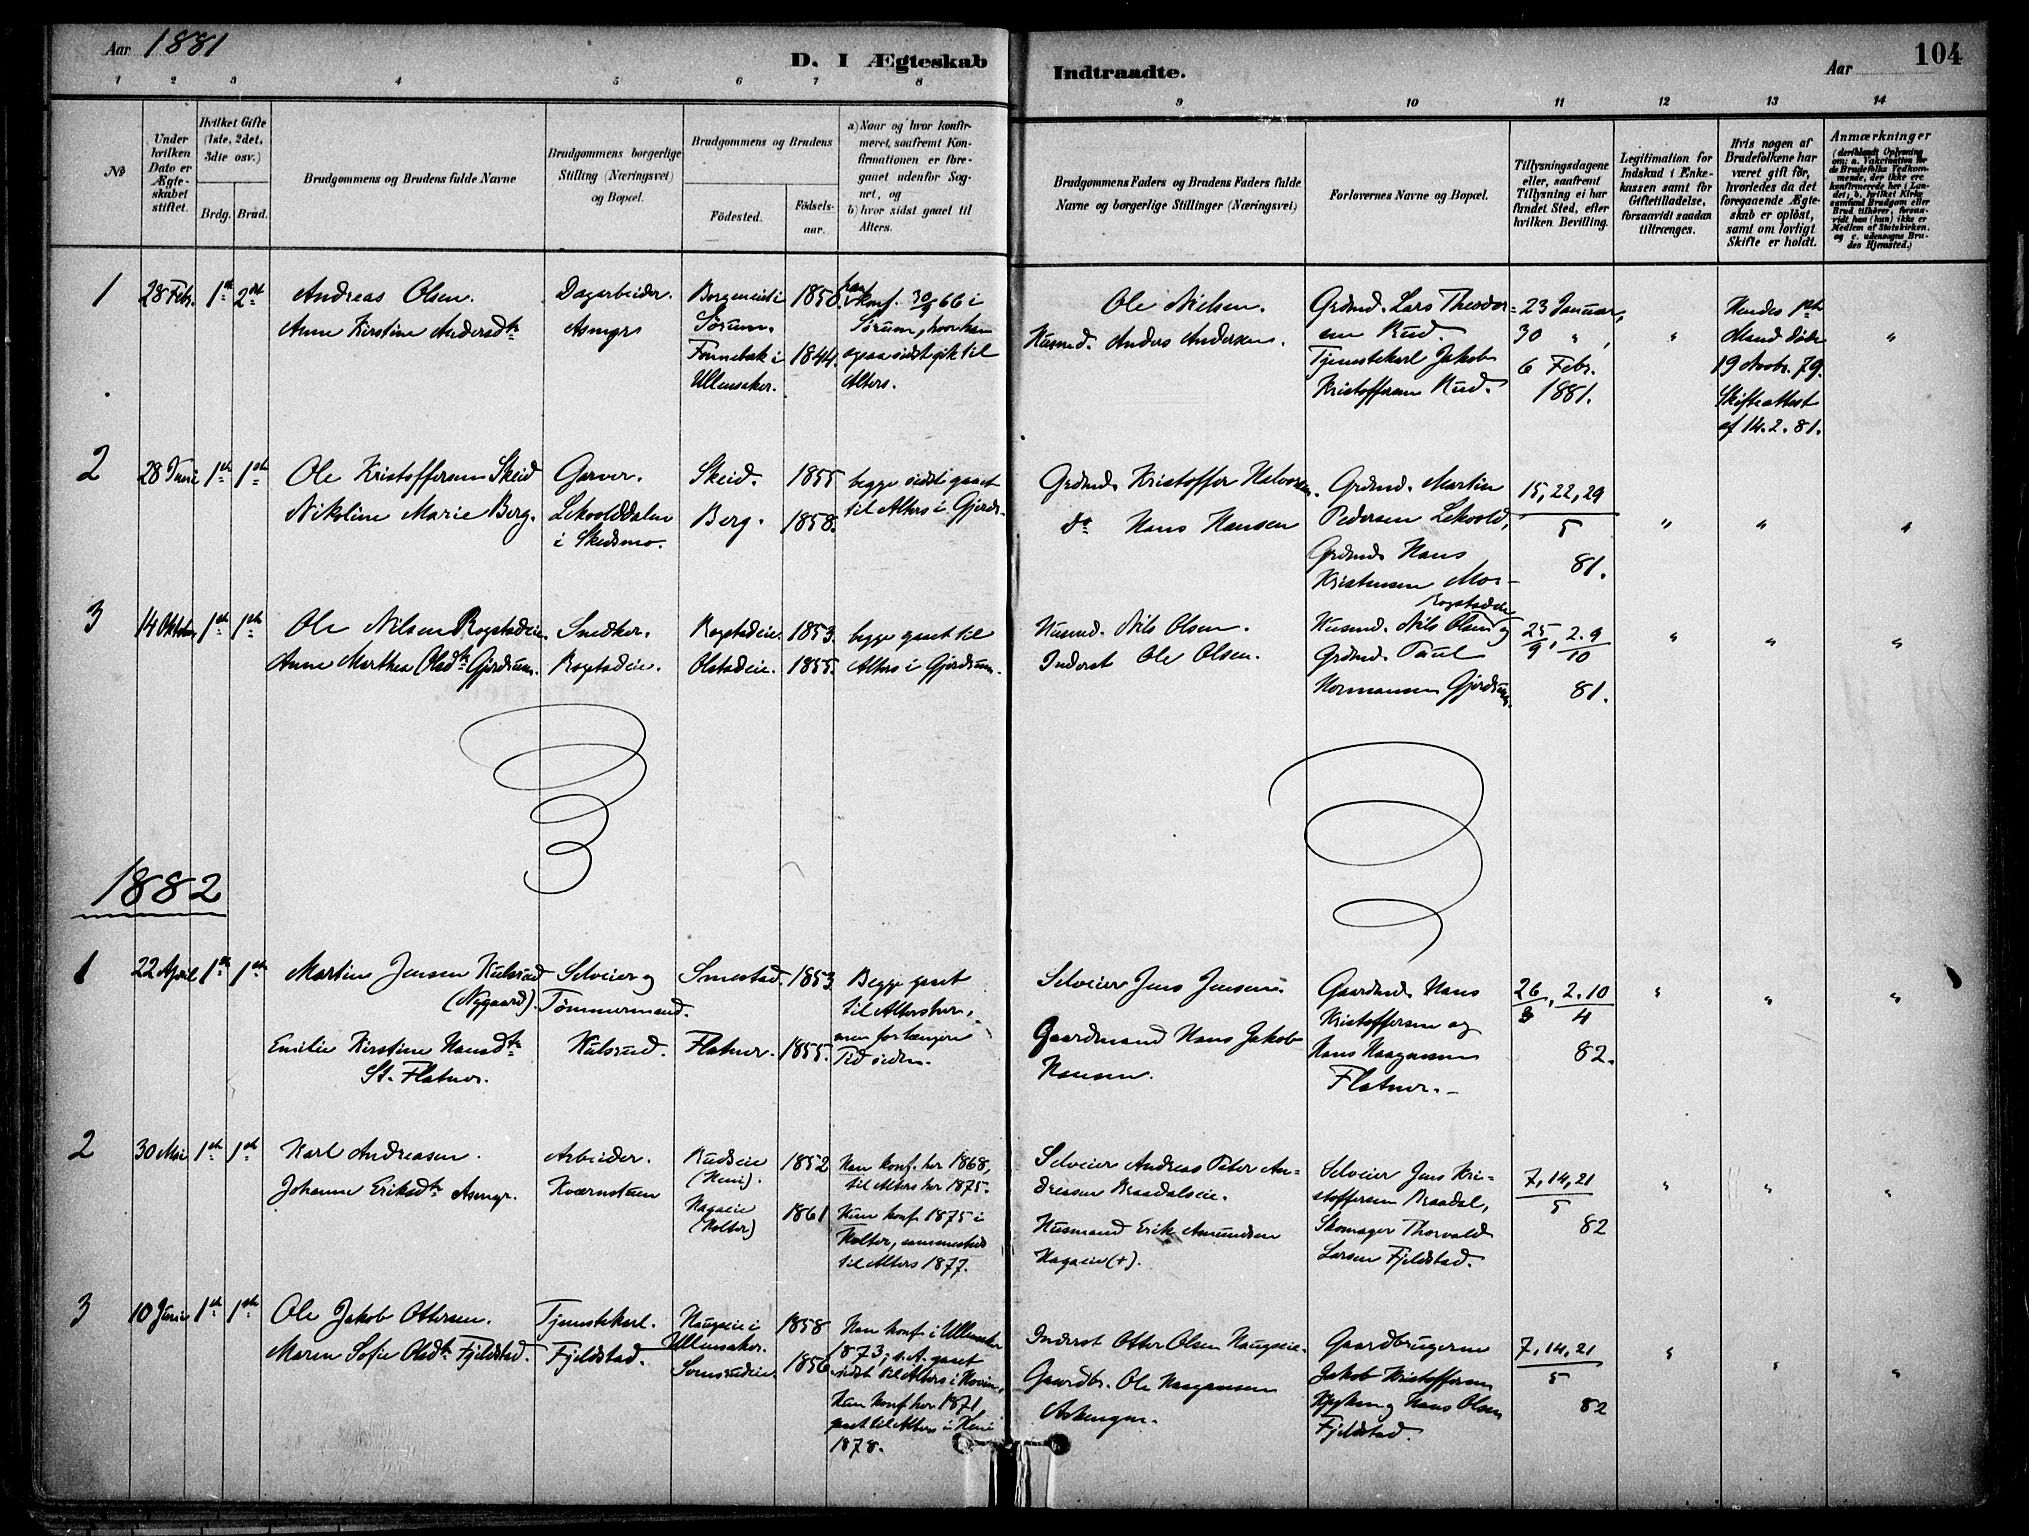 Aar 1881
D. I Ægteskab
Indtraadte.
Aar
104
1 2 3 4 5 6 7 8 9 10 11 12 13 14
No
Under hvilken Dato er Ægteskabet stiftet.
Hvilket Gifte (1ste, 2det, 3die osv.)
Brdg. Brud.
Brudgommens og Brudens fulde Navne
Brudgommens borgerlige Stilling (Næringsvei) og Bopæl.
Brudgommens og Brudens
Födested.
Födselsaar.
a) Naar og hvor konfirmeret, saafremt Konfirmationen er foregaaet udenfor Sognet, og
b) hvor sidst gaaet til Alters.
Brudgommens Faders og Brudens Faders fulde Navne og borgerlige Stillinger (Næringsvei)
Forlovernes Navne og Bopæl.
Tillysningsdagene eller, saafremt Tillysning ei har fundet Sted, efter hvilken Bevilling.
Legitimation for Indskud i Enkekassen samt for Giftetilladelse, forsaavidt saadan tiltrænges.
Hvis nogen af Brudefolkene har været gift för, hvorledes da det foregaaende Ægteskab er oplöst, samt om lovligt Skifte er holdt.
Anmærkninger (deriblandt Oplysning om: a. Vakcination for de Brudefolks Vedkommende, der ikke ere konfirmerede her i Landet; b. hvilket Kirkesamfund Brudgom eller Brud tilhörer, forsaavidt han (hun) ikke er Medlem af Statskirken. og c. udensogns Brudes Hjemsted.)
1 28 Febr. 1st 2det
Andreas Olsen.
Anne Kirstine Andersdtr
Dagarbeider.
Asmyr
Borgeneie i
Sørum.
Fonnebæk i
Ullensaker.
1850.
1844.
han konf. 30/9 66 i
Sørum, hvor han
ogsaa sidst gik til
Alters.
Ole Nielsen.
Husmd. Anders Andersen.
Grdmd. Lars Theodor
sen Rud.
Tjenestekarl Jakob
Kristoffersen Rud.
23 Januar,
30 " ,
6 Febr.
1881.
"
Hendes 1ste
Mand døde
19 Novbr. 79.
Skifteattest
af 14. 2. 81.
"
2 28 Juni 1ste 1ste
Ole Kristoffersen Skeid
Nikoline Marie Berg.
Garver.
Lekvolddalen
i Skedsmo.
Skeid.
Berg.
1855
1858.
begge sidst gaaet
til Alters i Gjerdr.
Grdmd. Kristoffer Halvorsen.
do Hans Hansen
Grdmd. Martin
Pedersen Lekvold,
Grdmd. Hans
Kristensen Mo.
15, 22, 29
5
81.
" " "
3 14 Oktober 1ste 1ste
Ole Nilsen Rogstadeie.
Anne Marthea Olsdtr Gjerdrum.
Snedker.
Rogstadeie.
Rogstadeie.
Olstadeie.
1853.
1855.
begge gaaet til
Alters i Gjerdrum.
Husmd. Nils Olsen.
Inderst Ole Olsen.
Rogstadeie
Husmd. Nils Olsen og
Grdmd. Paul
Hermansen Gjerdrum.
25/9, 2. 9/10
81.
" " "
1882
1 22 April 1ste 1ste
Martin Jensen Kulsrud
(Nygaard).
Emilie Kirstine Hansdtr
St. Flatner.
Selveier og
Tømmermand.
Kulsrud.
Smestad.
Flatner.
1853.
1855.
Begge gaaet
til Alters her,
men for længere
Tid siden.
Selveier Jens Jensen.
Gaardmand Hans Jakob
Hansen.
Gaardmd. Hans
Kristoffersen og
Hans Haagensen
Flatner.
26/3, 2. 10/4
82.
" " "
2 30 Mai 1ste 1ste
Karl Andreasen.
Johanne Eriksdtr Asmyr.
Arbeider.
Kværnstuen
Rudseie
(Heni).
Hagaeie
(Holter)
1852
1861
Han konf. her 1868,
til Alters her 1875.
Hun konf. 1875 i
Holter, sammesteds
til Alters 1877.
Selveier Andreas Peter An-
dreasen Braadalseie.
Husmand Erik Amundsen
Hagaeie (+).
Selveier Jens Kri-
stoffersen Braadal,
Skomager Thorvald
Larsen Fjeldstad.
7, 14, 21
5
82
" " "
3 10 Juni 1ste 1ste
Ole Jakob Ottersen.
Maren Sofie Olsdtr Fjeldstad.
Tjenstekarl.
Fjeldstad.
Haugseie i
Ullensaker.
Somsrudeie.
1858
1856
Han konf. i Ullensaker
1873, s. A. gaaet
sidst til Alters i Hovin,
Hun konf. her 1871,
gaaet til Alters i Heni
1878.
Inderst Otter Olsen Haugseie.
Gaardbr. Ole Haagensen
Askengen.
Gaardbrugerne
Jakob Kristoffersen
og Hans Olsen
Fjeldstad.
7, 14, 21
5
82
" " "